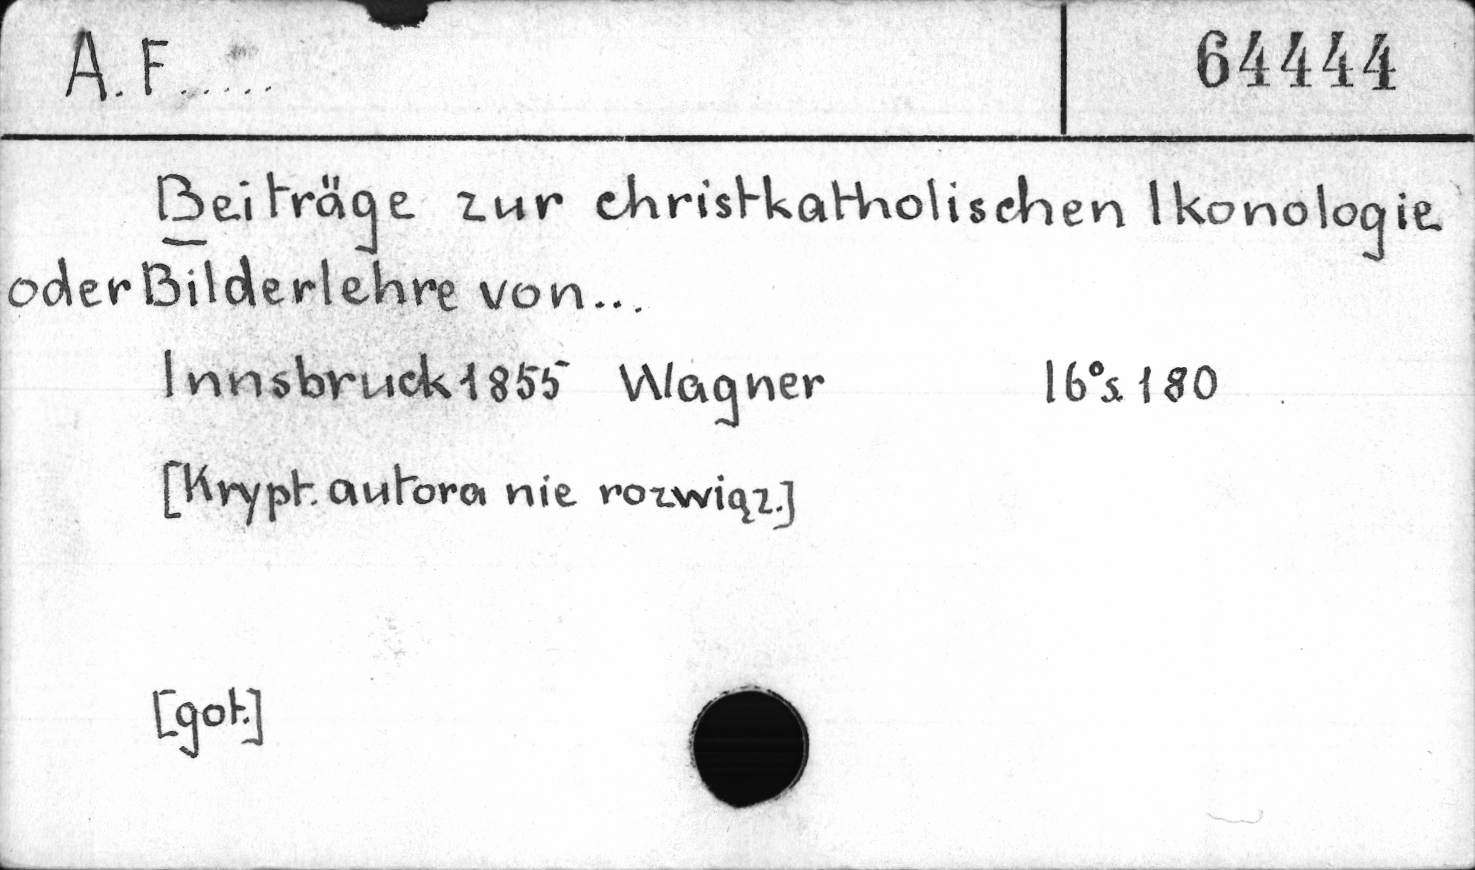 A. F......
64444
Beiträge zur christkatholischen Ikonologie
oder Bilderlehre von...
Innsbruck 1855 Wagner 16° s. 180
[Krypt. autora nie rozwiąz.]
[got.]